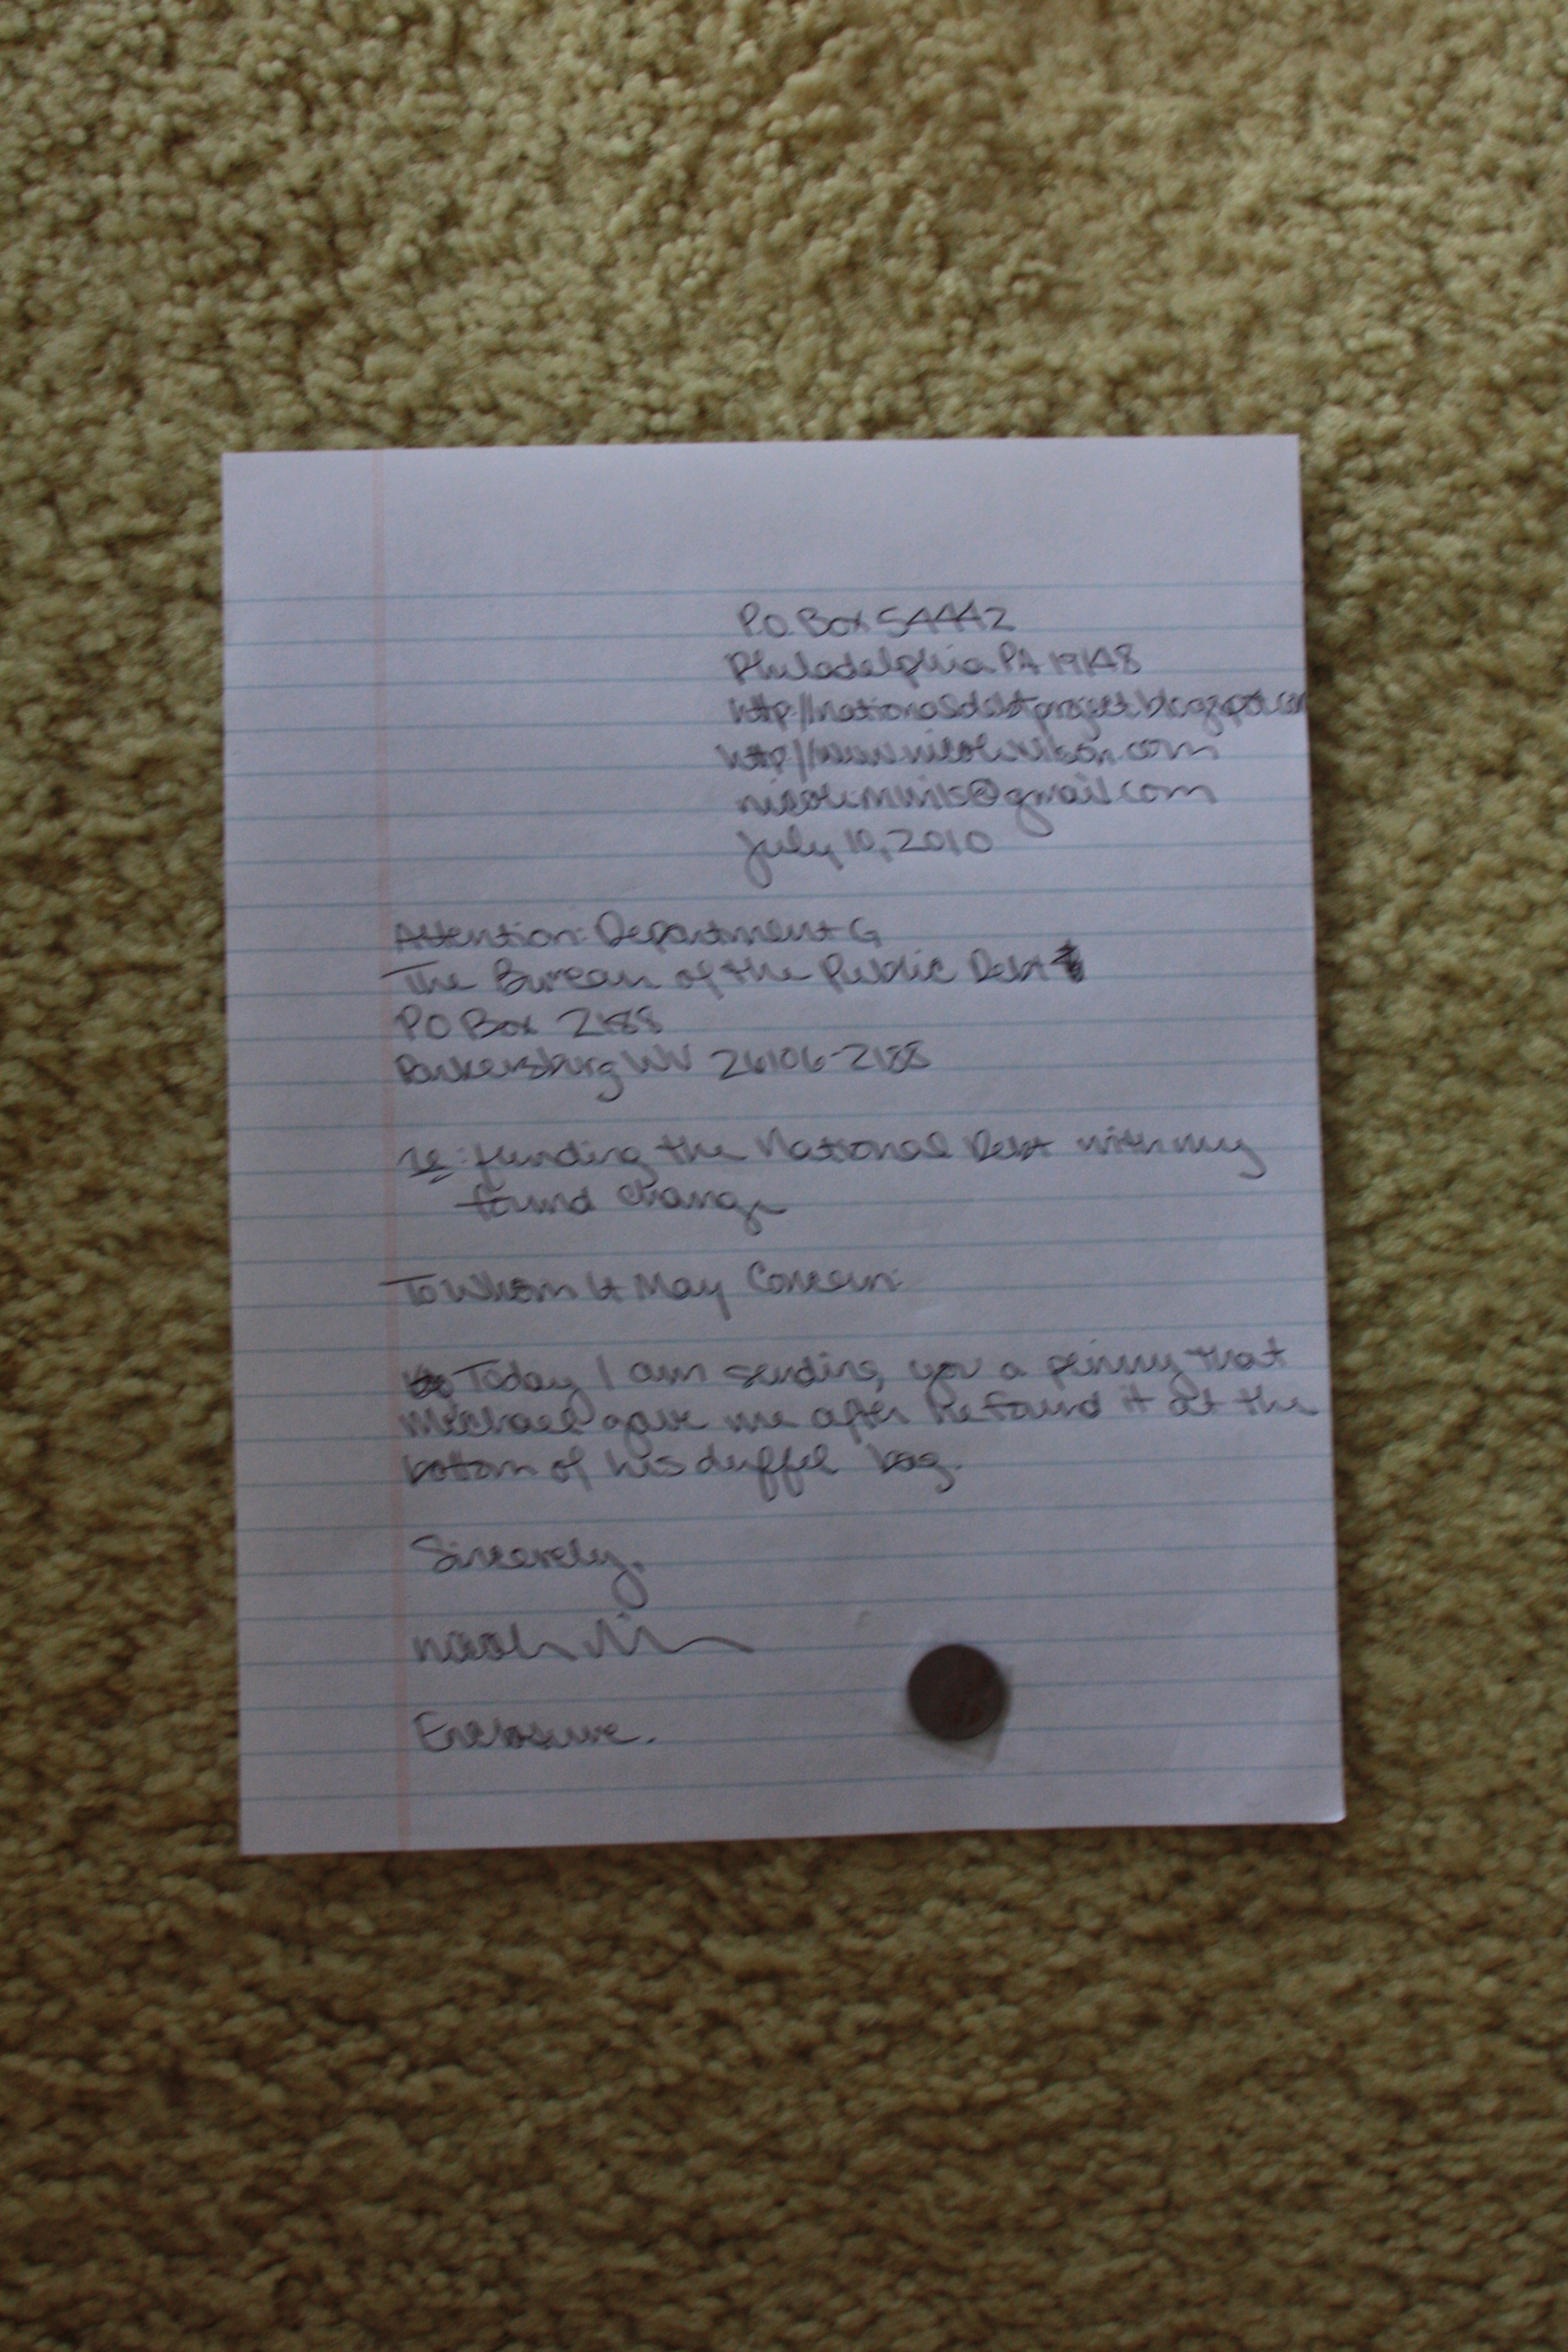 P.O. Box 54442
Philadelphia PA 19148
http://nationaldebtproject.blogspot.com
July 10, 2010
Attention: Department G
The Bureau of the Public Debt
PO Box 2188
Parkersburg WV 26106-2188
re: funding the National Debt with my
found change
To Whom It May Concern:
Today I am sending you a penny that
Michael gave me after he found it at the
bottom of his duffel bag.
Sincerely,
Enclosure.